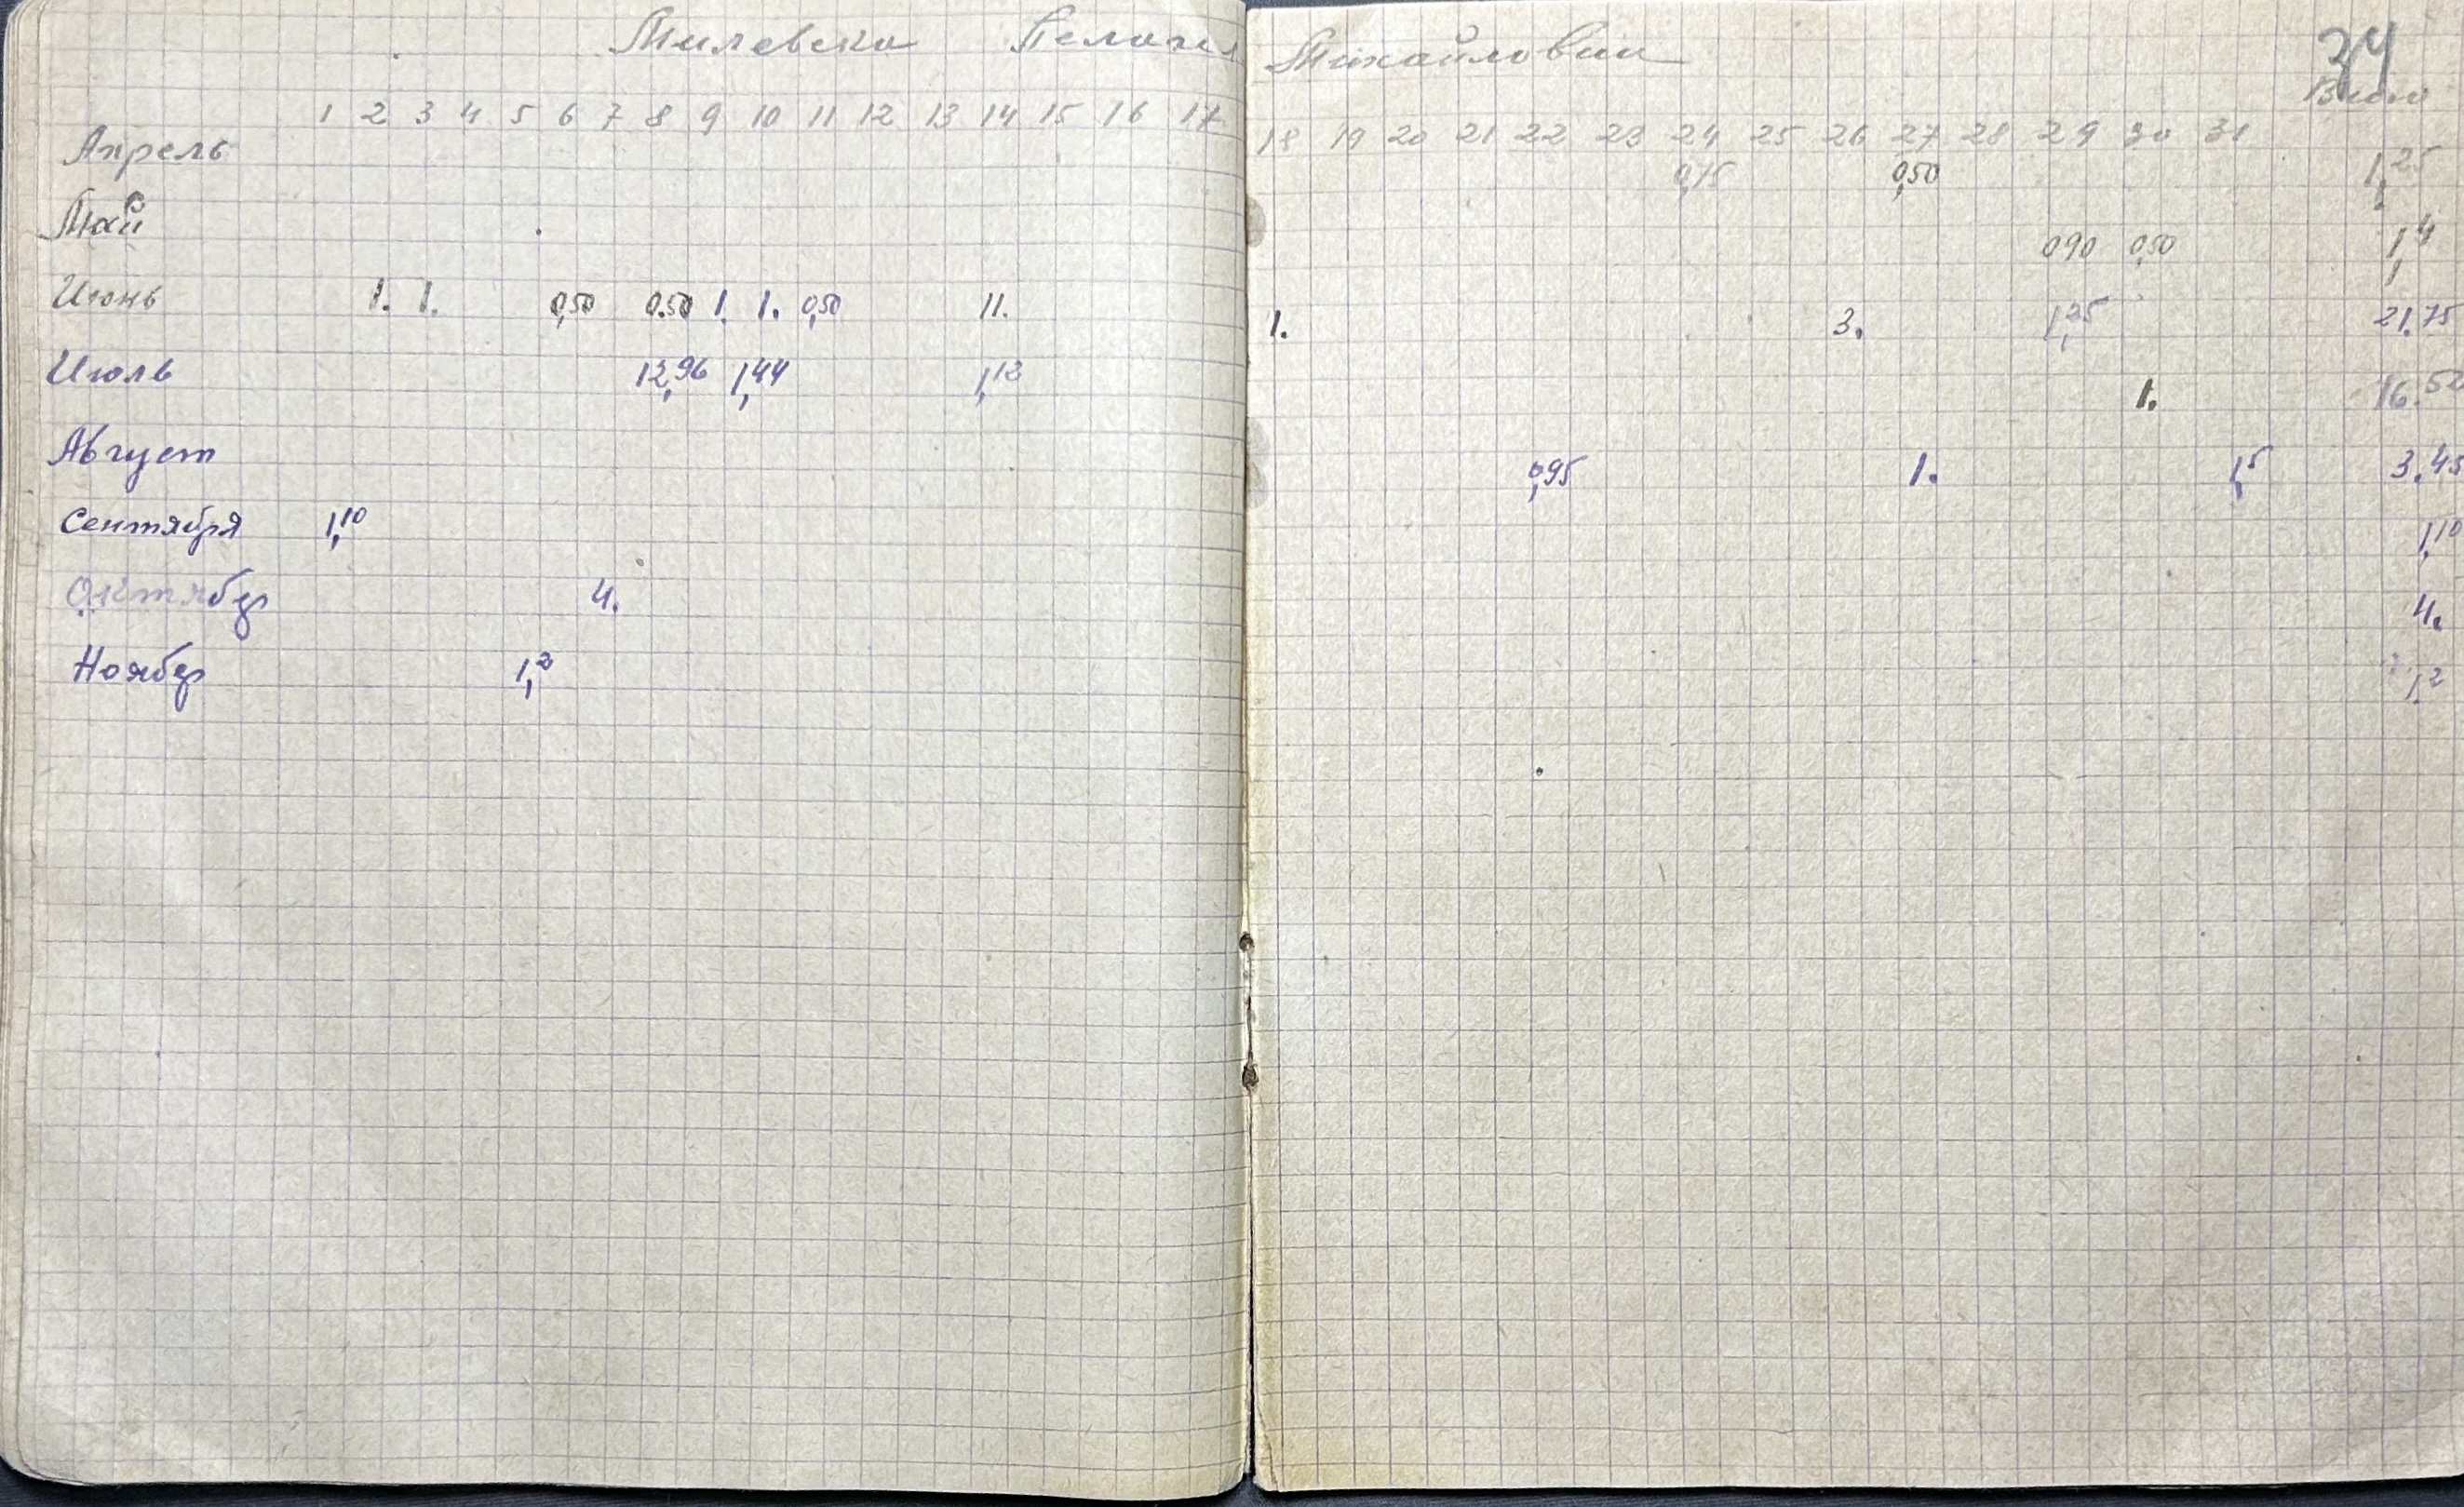 Милевска Пелагия Михайловна 34
1 2 3 4 5 6 7 8 9 10 11 12 13 14 15 16 17 18 19 20 21 22 23 24 25 26 27 28 29 30 31 Всего
Апрель 0,75 0,50 1,25
Май 090 0,50 1,4
Июнь 1. 1. 0,50 0.50 1. 1. 0,50 11. 1. 3. 1,25 21.75
Июль 12,96 1,44 1,12 1. 16.52
Август 0,95 1. 1,5 3.45
Сентября 1,10 1,10
Октябр 4. 4.
Ноябр 1,2 1,2